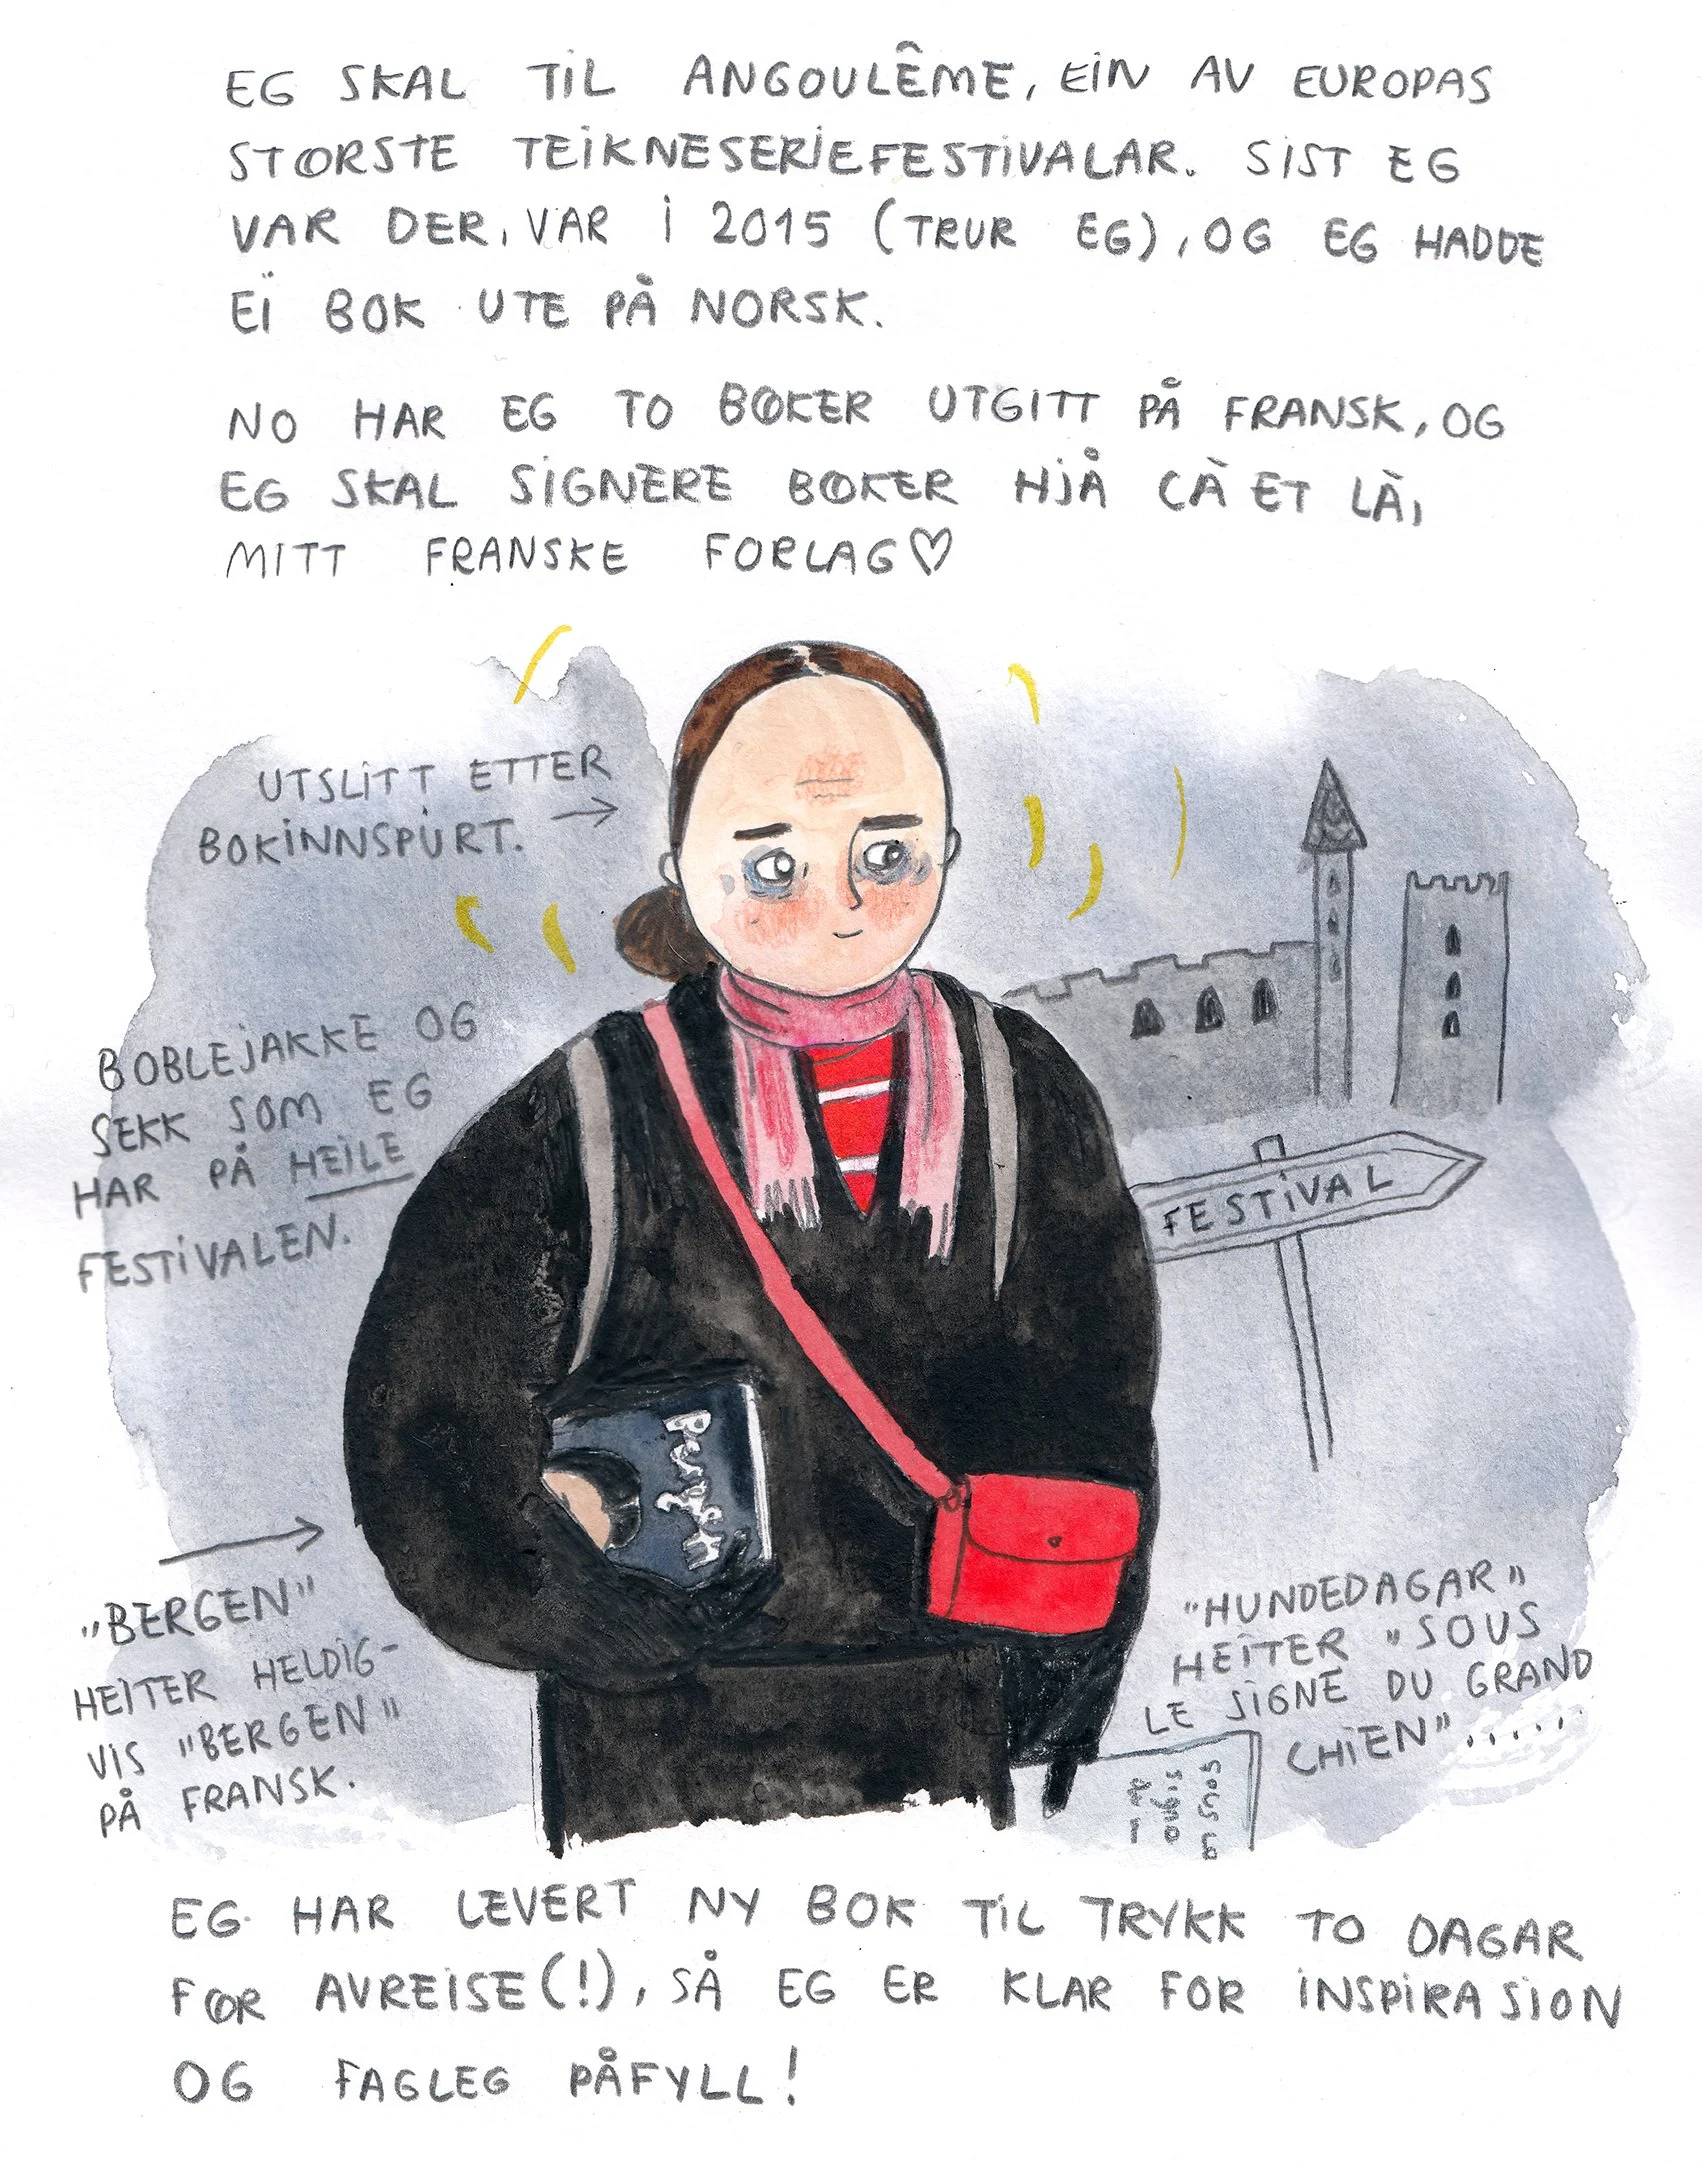 EG SKAL TIL ANGOULÊME, EIN AV EUROPAS
STØRSTE TEIKNESERIEFESTIVALAR. SIST EG
VAR DER, VAR I 2015 (TRUR EG), OG EG HADDE
EI BOK UTE PÅ NORSK.
NO HAR EG TO BØKER UTGITT PÅ FRANSK, OG
EG SKAL SIGNERE BØKER HJÅ ÇÀ ET LÀ,
MITT FRANSKE FORLAG♡
UTSLITT ETTER
BOKINNSPURT. →
BOBLEJAKKE OG
SEKK SOM EG
HAR PÅ HEILE
FESTIVALEN.
FESTIVAL
Bergen
→
"BERGEN"
HEITER HELDIG-
VIS "BERGEN"
PÅ FRANSK.
"HUNDEDAGAR"
HEITER "SOUS
LE SIGNE DU GRAND
CHIEN".....
SOUS
EG HAR LEVERT NY BOK TIL TRYKK TO DAGAR
FØR AVREISE(!), SÅ EG ER KLAR FOR INSPIRASJON
OG FAGLEG PÅFYLL!